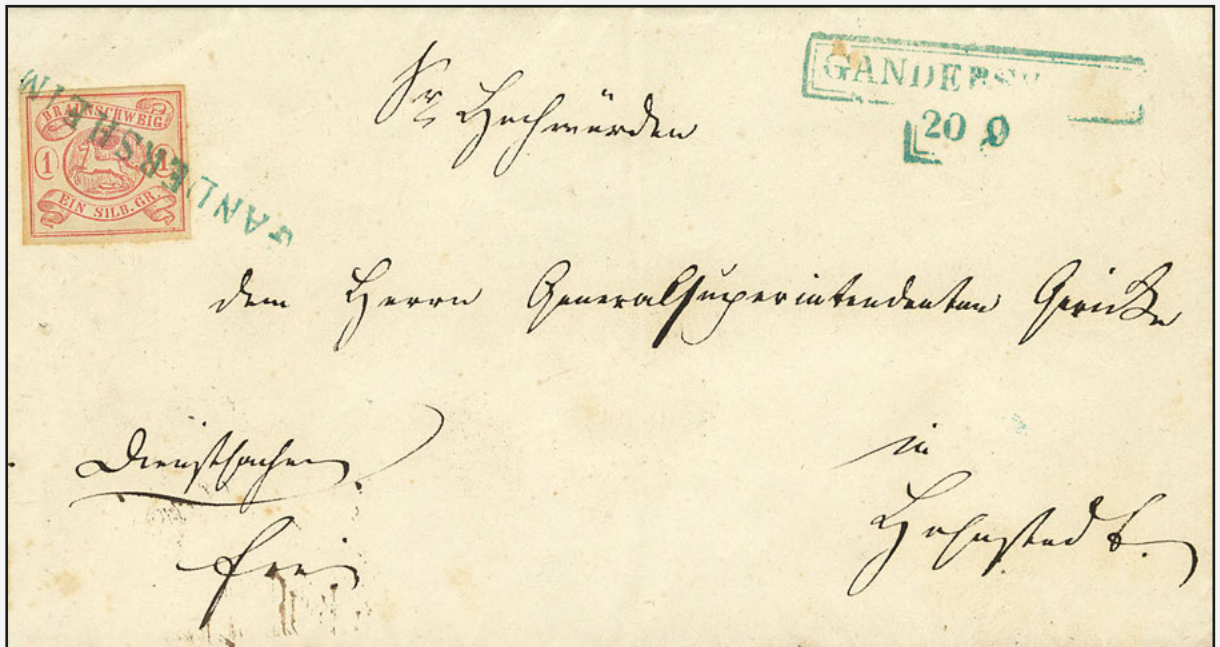 GANDERSHEIM
BRAUNSCHWEIG
1 1
EIN SILB. GR.
GANDERSHEIM
20 9
Sr Hochwürden
dem Herrn Generalsuperintendenten Gericke
Dienstsachen
frei
in
Hohnstedt.